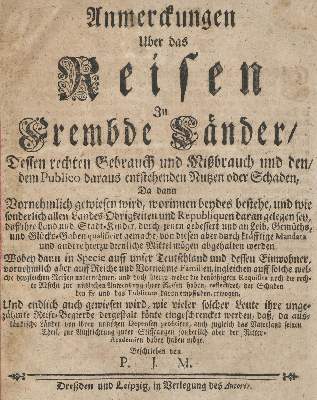 Anmerckungen
Uber das
Reisen
In
Frembde Länder/
Dessen rechten Gebrauch und Mißbrauch und den/
dem Publico daraus entstehenden Nutzen oder Schaden,
Da dann
Vornehmlich gewiesen wird, worinnen beydes bestehe, und wie
sonderlich allen Landes-Obrigkeiten und Republiquen daran gelegen sey,
daß ihre Land und Stadt-Kinder, durch zuvor an Leib, Gemüths,
und Glücks-Gaben qualificirt gemacht, von diesen aber durch kräfftige Mandata
und andere hierzu dienliche Mittel mögen abgehalten werden.
Wobey dann in Specie auff unser Teutschland und dessen Einwohner,
vornehmlich aber auff Reiche und Vornehme Familien, ingleichen auff solche welche
Reisen und doch weder die benöthigten Requisita noch die rechte
Absicht zur nützlichen Anwendung ihrer Reisen haben, der Schaden
den sie und das Publicum davon
Und endlich auch gewiesen wird, wie vieler solcher Leute ihre unge-
zähmte Reise-Begierde dergestalt könte eingeschrencket werden, daß, da aus-
ländische Länder von ihren unnützen Depensen profitiren, auch zugleich das Vaterland seinen
Theil, zur Auffrichtung guter Stifftungen sonderlich aber der Ritter-
Academien dabey haben möge.
Beschrieben von
P. J. M.
Dreßden und Leipzig, in Verlegung des Autoris.